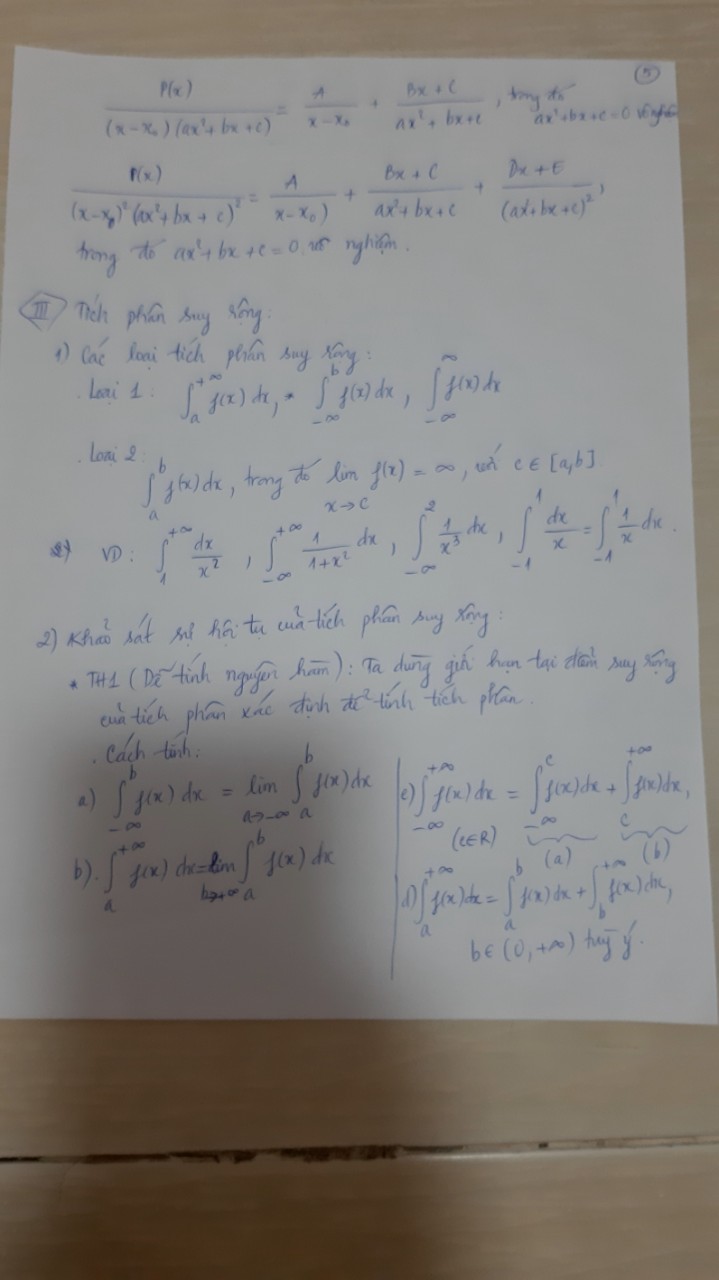 (5)
P(x)/((x-x₀)(ax²+bx+c)) = A/(x-x₀) + (Bx+C)/(ax²+bx+c), trong đó ax²+bx+c=0 vô nghiệm
P(x)/((x-x₀)²(ax²+bx+c)²) = A/(x-x₀) + (Bx+C)/(ax²+bx+c) + (Dx+E)/(ax²+bx+c)²,
trong đó ax²+bx+c=0 vô nghiệm.
III Tích phân suy rộng:
1) Các loại tích phân suy rộng:
. Loại 1: ∫_a^{+∞} f(x) dx, ∫_{-∞}^b f(x) dx, ∫_{-∞}^∞ f(x) dx
. Loại 2:
∫_a^b f(x) dx, trong đó lim_{x→c} f(x) = ∞, với c ∈ [a,b]
VD: ∫_1^{+∞} dx/x², ∫_{-∞}^{+∞} 1/(1+x²) dx, ∫_{-∞}^2 1/x³ dx, ∫_{-1}^1 dx/x = ∫_{-1}^1 1/x dx.
2) Khảo sát sự hội tụ của tích phân suy rộng:
* TH1 (Dễ tính nguyên hàm): Ta dùng giới hạn tại điểm suy rộng
của tích phân xác định để tính tích phân.
. Cách tính:
a) ∫_{-∞}^b f(x) dx = lim_{a→-∞} ∫_a^b f(x) dx
b). ∫_a^{+∞} f(x) dx = lim_{b→+∞} ∫_a^b f(x) dx
c) ∫_{-∞}^{+∞} f(x) dx = ∫_{-∞}^c f(x) dx + ∫_c^{+∞} f(x) dx,
(c∈R) (a) (b)
d) ∫_a^{+∞} f(x) dx = ∫_a^b f(x) dx + ∫_b^{+∞} f(x) dx,
b ∈ (0, +∞) tuỳ ý.